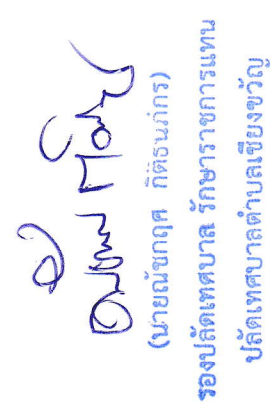 (นายณัชกฤศ กิติธนภ์กร)
รองปลัดเทศบาล รักษาราชการแทน
ปลัดเทศบาลตำบลเชียงขวัญ